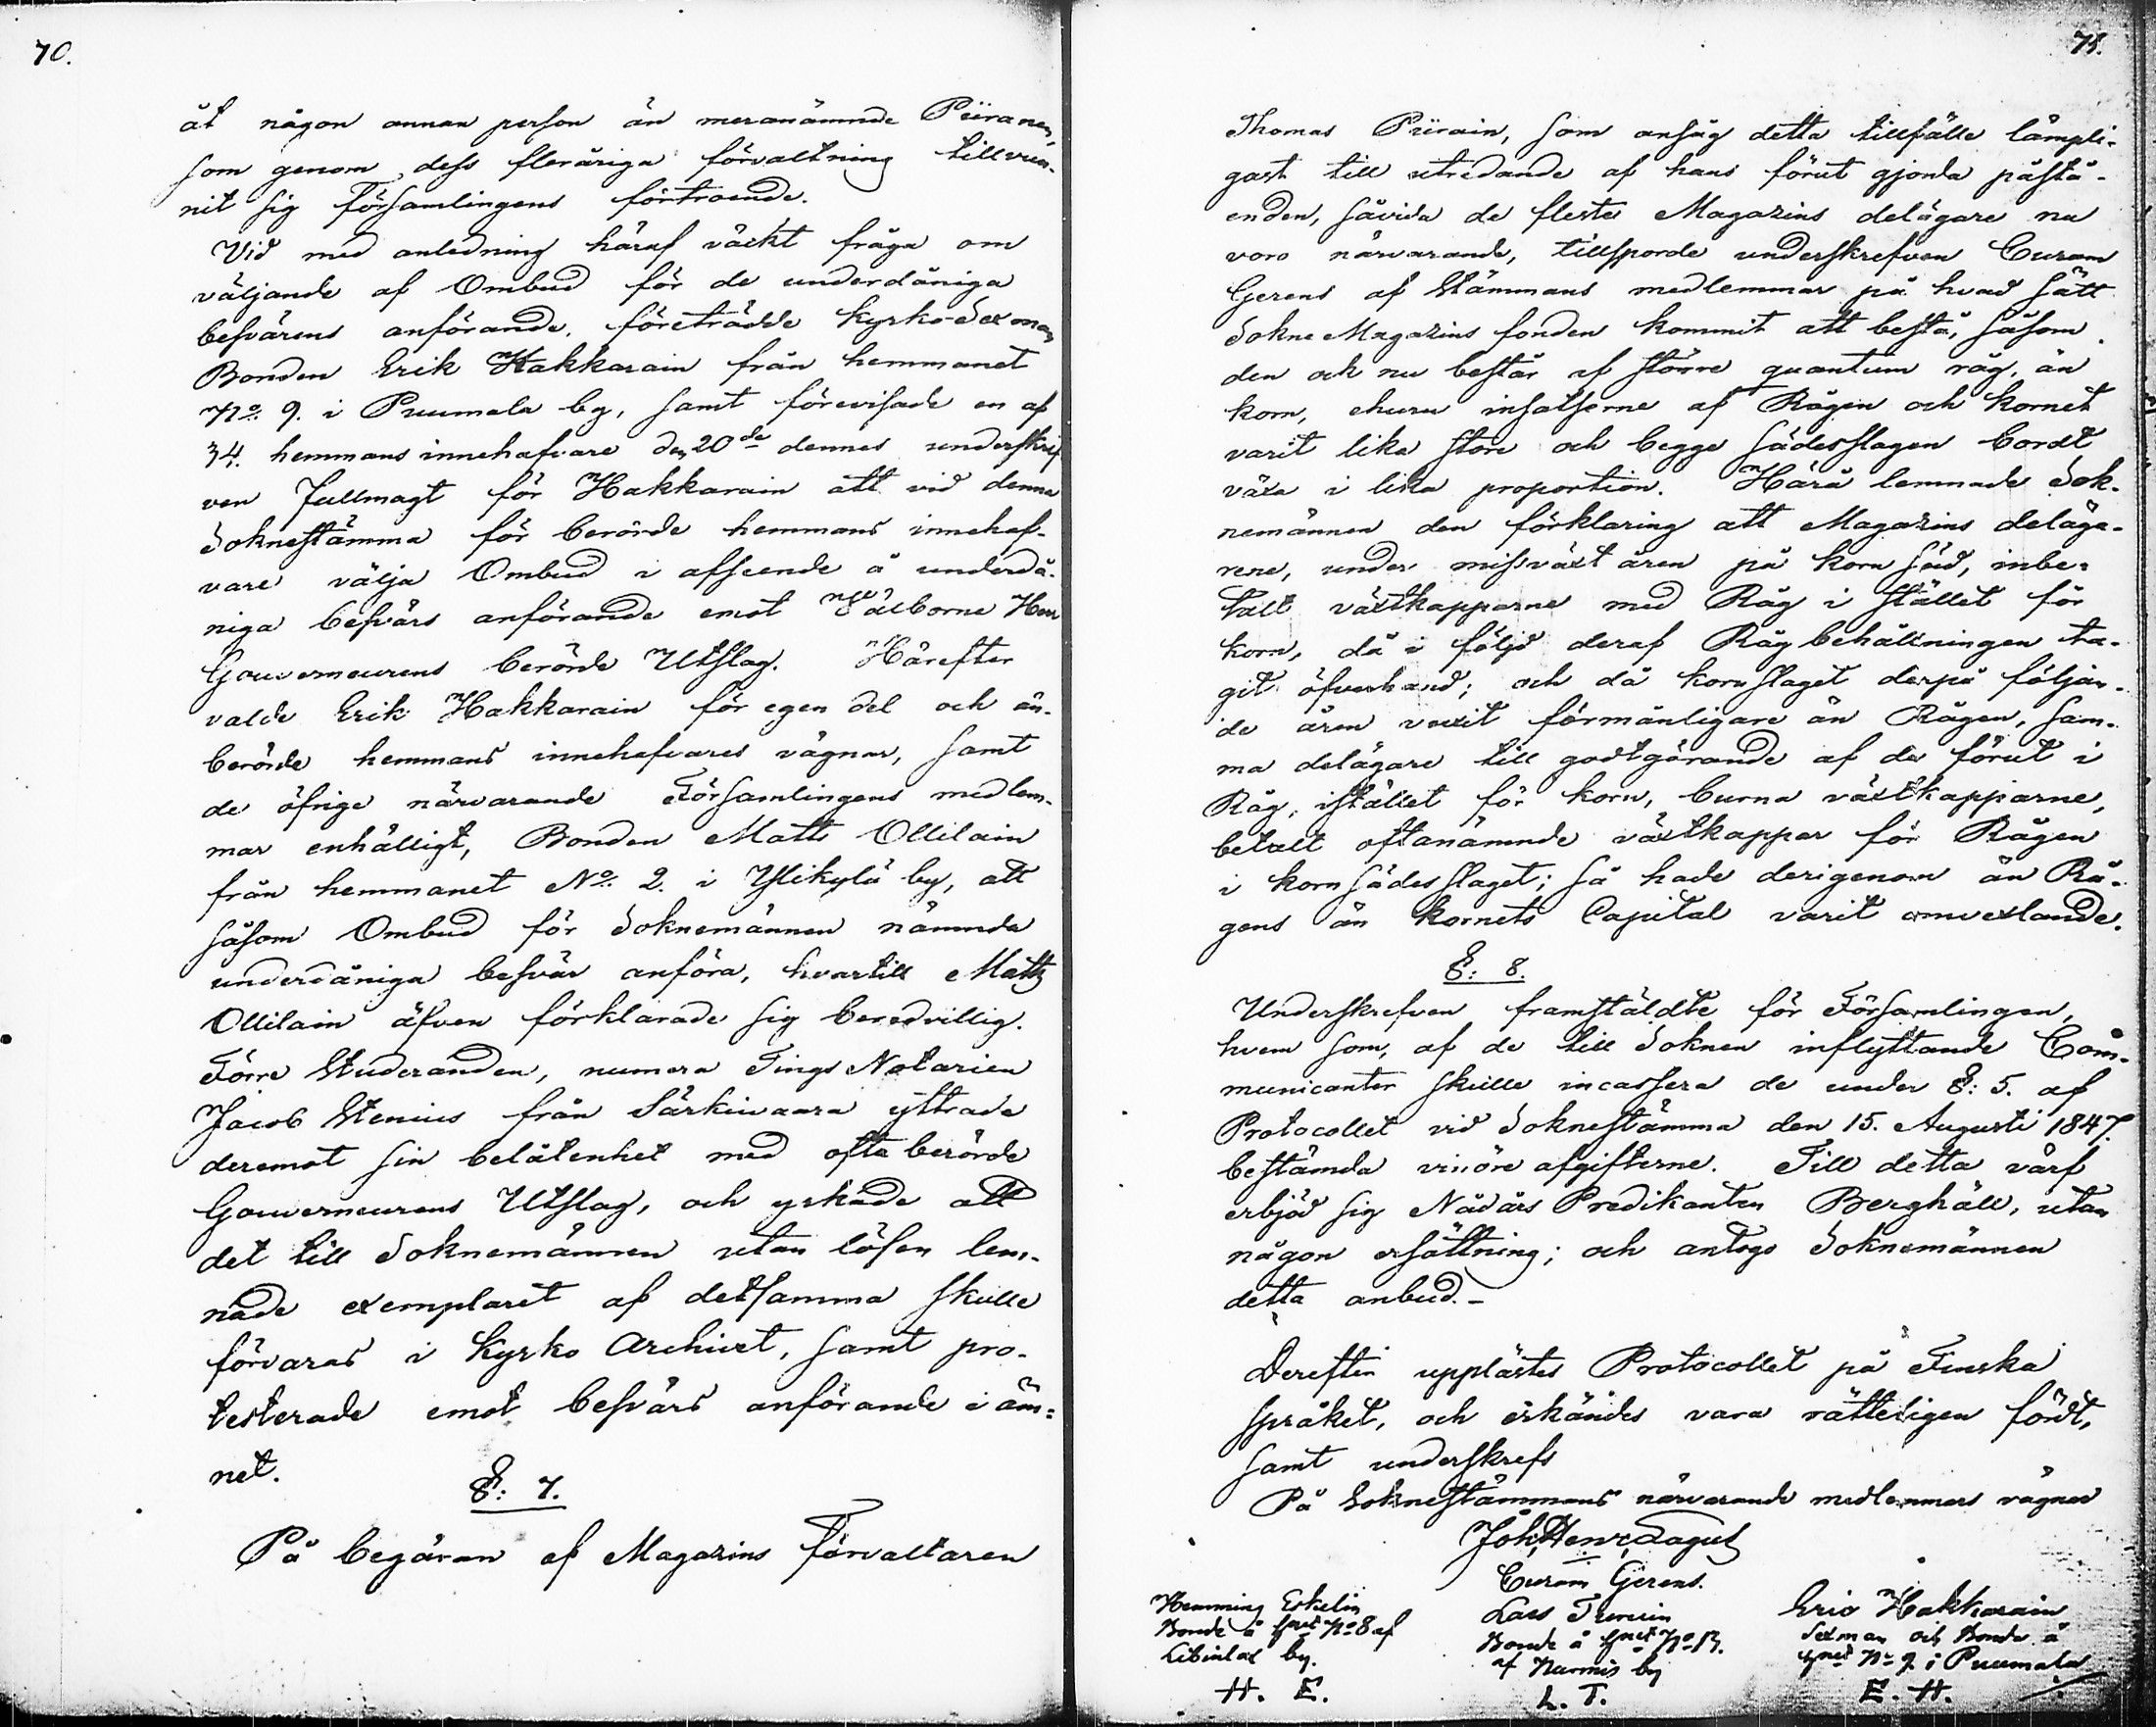 70.
åt någon annan person än meranämnde Piiranen,
som genom dess fleråriga förvaltning tillvun-
nit sig Församlingens förtroende.
Vid med anledning häraf väckt fråga om
väljande af Ombud för de underdåniga
besvärens anförande, företrädde Kyrko-Sexman,
Bonden Erik Hakkarain från hemmanet
No: 9. i Puumala by, samt förevisade en af
34. hemmans innehafvare den 20de dennes underskrif
ven fullmagt för Hakkarain att vid denna
Soknestämma för berörde hemmans innehaf-
vare välja Ombud i afseende å underdå-
niga besvärs anförande emot Välborne Herr
Gouverneurens berörde Utslag. Härefter
valde Erik Hakkarain för egen del och å n-
berörde hemmans innehafvares vägnar, samt
de öfrige närvarande Församlingens medlem-
mar enhälligt, Bonden Matts Ollilain
från hemmanet No: 2. i Ylikylä by, att
såsom Ombud för Soknemännen nämnda
underdåniga besvär anföra, hvartill Matts
Ollilain äfven förklarade sig beredvillig.
Förre Studeranden, numera Tings Notarien
Jacob Stenius från Särkivaara yttrade
deremot sin belåtenhet med ofta berörde
Gouverneurens Utslag, och yrkade att
det till Soknemännen utan lösen lem-
nade exemplaret af detsamma skulle
förvaras i Kyrko Archivet, samt pro-
testerade emot besvärs anförande i äm-
net.
§: 7.
På begäran af Magazins Förvaltaren
71.
Thomas Piirain, som ansåg detta tillfälle lämpli-
gast till utredande af hans förut gjorda påstå-
enden, såvida de fleste Magazins delägare nu
voro närvarande, tillsporde underskrefven Curam
Gerens af Stämmans medlemmar på hvad sätt
Sokne Magazins fonden kommit att bestå, såsom
den och nu består af större quantum råg, än
korn, ehuru insatserne af Rågen och kornet
varit lika stora och begge sädesslagen bordt
växa i lika proportion. Härå lemnade Sok-
nemännen den förklaring att Magazins deläga-
rene, under missväxt åren på korn säd, inbe-
talt växtkapparne med Råg i stället för
korn, då i följd deraf Råg behållningen ta-
git öfverhand; och då kornslaget derpå följan-
de åren varit förmånligare än Rågen, sam-
ma delägare till godtgörande af de förut i
Råg, istället för korn, burna växtkapparne,
betalt oftanämnde växtkappar för Rågen
i korn sädes slaget; så hade derigenom än Rå-
gens än kornets Capital varit omvexlande.
§: 8.
Underskrefven framställdte för Församlingen,
hvem som, af de till Soknen inflyttande Com-
municanter skulle incassera de under §: 5. af
Protocollet vid Soknestämma den 15. Augusti 1847.
bestämda vinöre afgifterne. Till detta värf
erbjöd sig Nådårs Predikanten Berghäll, utan
någon ersättning; och antogo Soknemännen
detta anbud.-
Derefter upplästes Protocollet på Finska
språket, och erkändes vara rätteligen fördt,
samt underskrefs
På Soknestämmans närvarande medlemmars vägnar
Joh, Henr,
Curam Gerens.
Hemming Eskelin
Bonde å No 8 af
by.
H. E.
Lars
Bonde å No 13.
af Nurmis by
L. T.
Eric Hakkarain
Sexman och Bonde å
No 9 i Puumala
E. H.